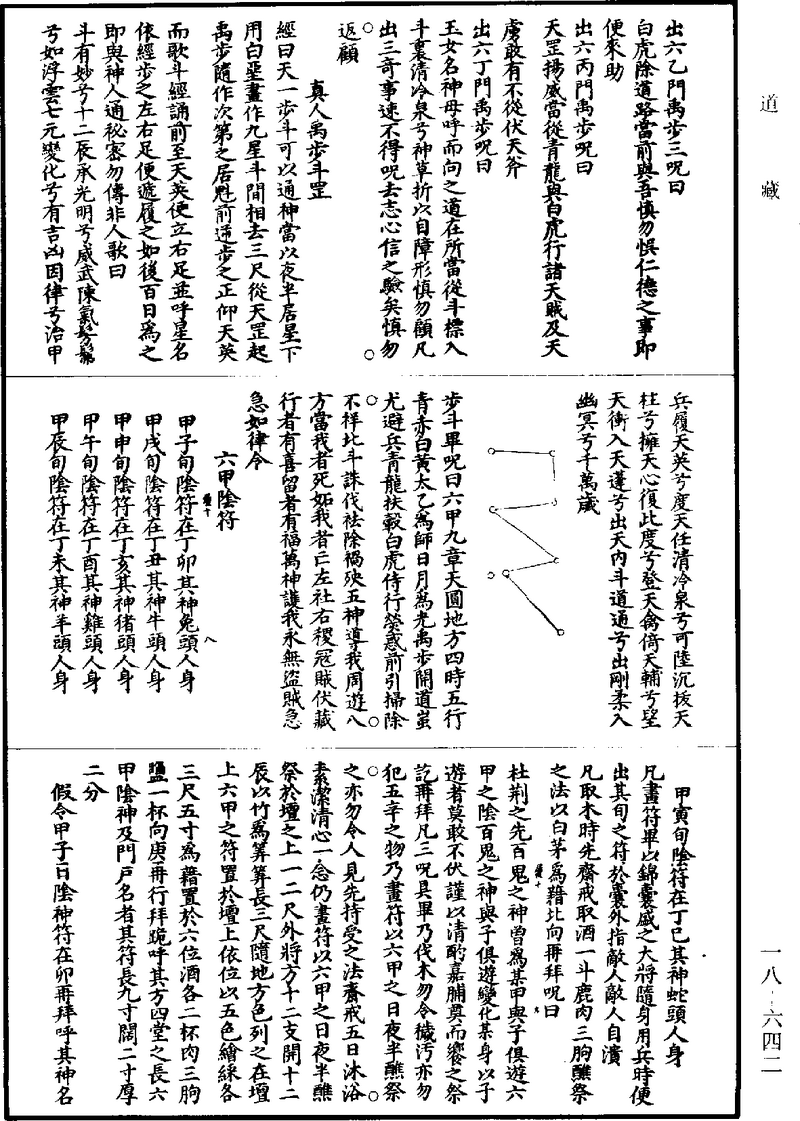 道藏
出六乙門禹步三呪曰
白虎除道路當前與吾慎勿悞仁德之事即
便來助
出六丙門禹步呪曰
天罡揚威當從青龍與白虎行諸天賊及天
虜敢有不從伏天斧
出六丁門禹步呪曰
玉女名神母呼而向之道在所當從斗標入
斗裏清冷泉兮神草折以自障形慎勿顧凡
出三奇事速不得呪去志心信之驗矣慎勿
返顧
真人禹步斗罡
經曰天一步斗可以通神當以夜半居星下
用白堊畫作九星斗間相去三尺從天罡起
禹步隨作次第之居魁前逆步之正仰天英
而歌斗經誦前至天英便立右足並呼星名
依經步之左右足便遞履之如後百日為之
即與神人通祕密勿傳非人歌曰
斗有妙兮十二辰承光明兮威武陳氣髣髴
兮如浮雲七元變化兮有吉凶因律兮治甲
兵履天英兮度天任清冷泉兮可陸沉拔天
柱兮擁天心復此度兮登天禽倚天輔兮望
天衝入天蓬兮出天內斗道通兮出剛柔入
幽冥兮千萬歲
步斗畢呪曰六甲九章天圓地方四時五行
青赤白黃太乙為師日月為光禹步開道蚩
尤避兵青龍扶轂白虎侍行熒惑前引掃除
不祥北斗誅伐祛除禍殃五神導我周遊八
方當我者死妬我者亡左社右稷寇賊伏藏
行者有喜留者有福萬神護我永無盜賊急
急如律令
六甲陰符
甲子旬陰符在丁卯其神兔頭人身
甲戌旬陰符在丁丑其神牛頭人身
甲申旬陰符在丁亥其神猪頭人身
甲午旬陰符在丁酉其神雞頭人身
甲辰旬陰符在丁未其神羊頭人身
甲寅旬陰符在丁巳其神蛇頭人身
凡畫符畢以錦囊盛之大將隨身用兵時便
出其旬之符於囊外指敵人敵人自潰
凡取木時先齋戒取酒一斗鹿肉三朐醮祭
之法以白茅為藉北向再拜呪曰
杜荆之先百鬼之神曾為某甲與子俱遊六
甲之陰百鬼之神與子俱遊變化某身以子
遊者莫敢不伏謹以清酌嘉脯奠而饗之祭
訖再拜凡三呪具畢乃伐木勿令穢污亦勿
犯五辛之物乃畫符以六甲之日夜半醮祭
之亦勿令人見先持受之法齋戒五日沐浴
素潔清心一念仍畫符以六甲之日夜半醮
祭於壇之上一二尺外將方十二支開十二
辰以竹為筭筭長三尺隨地方色列之在壇
上六甲之符置於壇上依位以五色繒綵各
三尺五寸為藉置於六位酒各二杯肉三朐
鹽一杯向庚再行拜跪呼其方四堂之長六
甲陰神及門戶名者其符長九寸闊二寸厚
二分
假令甲子日陰神符在卯再拜呼其神名
一八-六四二